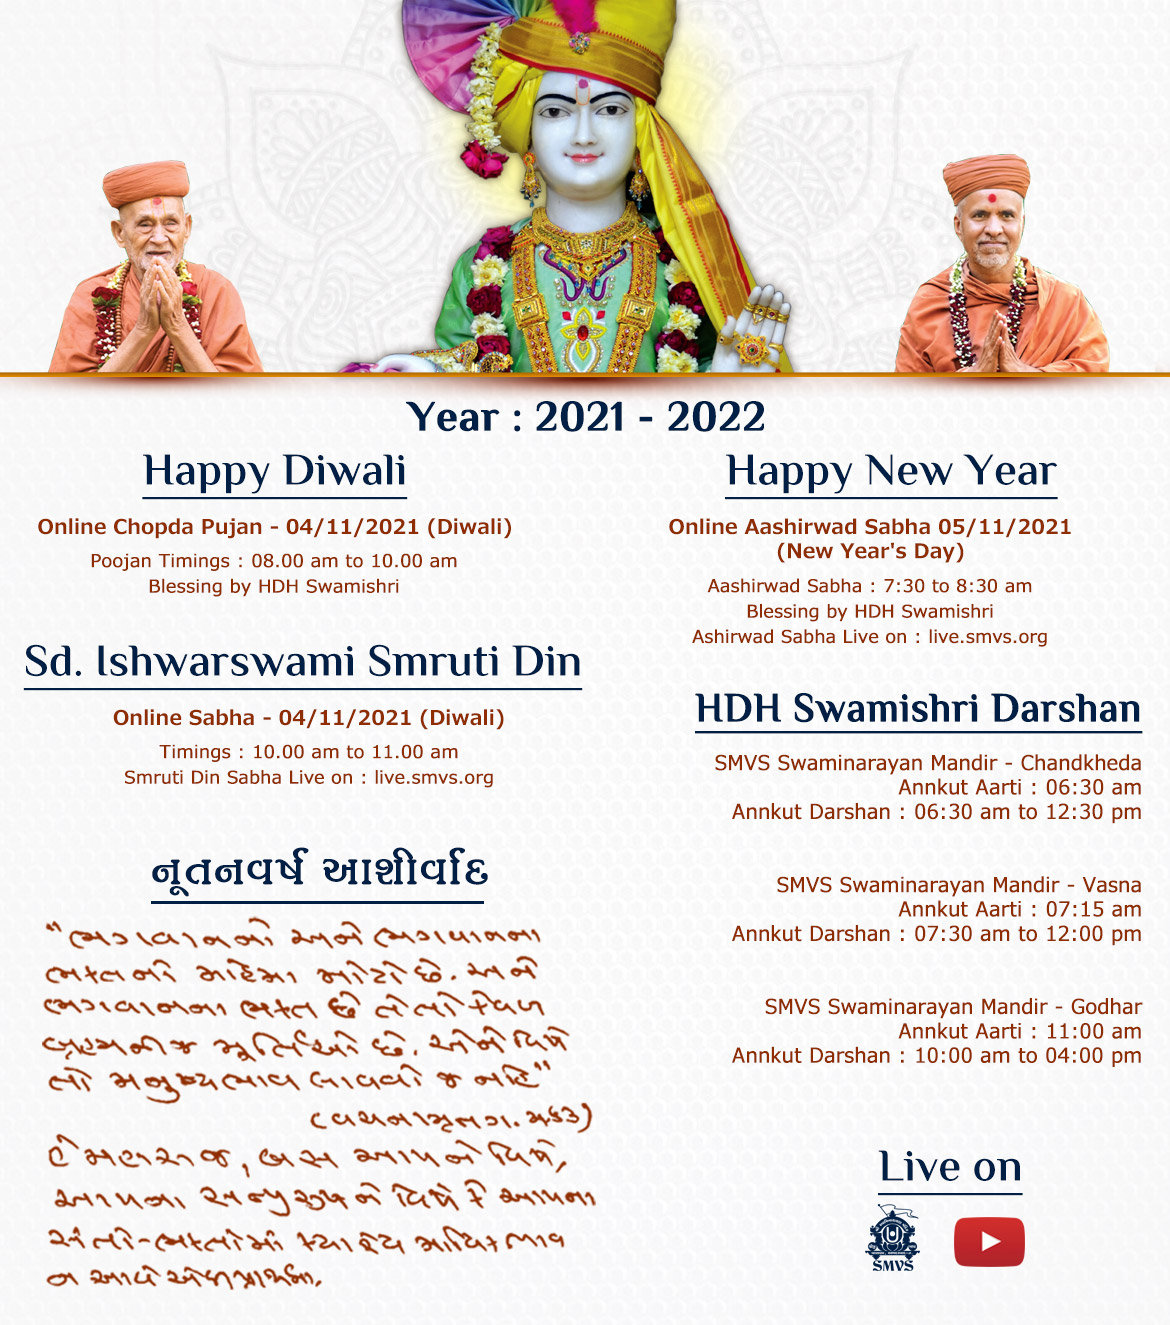 Year : 2021 - 2022
Happy Diwali
Online Chopda Pujan - 04/11/2021 (Diwali)
Poojan Timings : 08.00 am to 10.00 am
Blessing by HDH Swamishri
Sd. Ishwarswami Smruti Din
Online Sabha - 04/11/2021 (Diwali)
Timings : 10.00 am to 11.00 am
Smruti Din Sabha Live on : live.smvs.org
નૂતનવર્ષ આશીર્વાદ
"ભગવાનનો અને ભગવાનના
ભક્તનો મહિમા મોટો છે. અને
ભગવાનના ભક્ત છે તે તો કેવળ
બ્રહ્મની જ મૂર્તિઓ છે. એને વિષે
તો મનુષ્યભાવ લાવવો જ નહિ"
(વચનામૃત ગ. મ. ૬૩)
હે મહારાજ, બસ આપને વિષે,
આપના સત્પુરુષને વિષે કે આપના
સંતો-ભક્તોમાં ક્યારેય માયિકભાવ
ન આવે એવી પ્રાર્થના.
Happy New Year
Online Aashirwad Sabha 05/11/2021
(New Year's Day)
Aashirwad Sabha : 7:30 to 8:30 am
Blessing by HDH Swamishri
Ashirwad Sabha Live on : live.smvs.org
HDH Swamishri Darshan
SMVS Swaminarayan Mandir - Chandkheda
Annkut Aarti : 06:30 am
Annkut Darshan : 06:30 am to 12:30 pm
SMVS Swaminarayan Mandir - Vasna
Annkut Aarti : 07:15 am
Annkut Darshan : 07:30 am to 12:00 pm
SMVS Swaminarayan Mandir - Godhar
Annkut Aarti : 11:00 am
Annkut Darshan : 10:00 am to 04:00 pm
Live on
SMVS